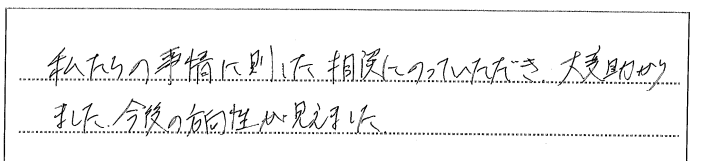 私たちの事情に則した相談にのっていただき、大変助かり
ました。今後の方向性が見えました。